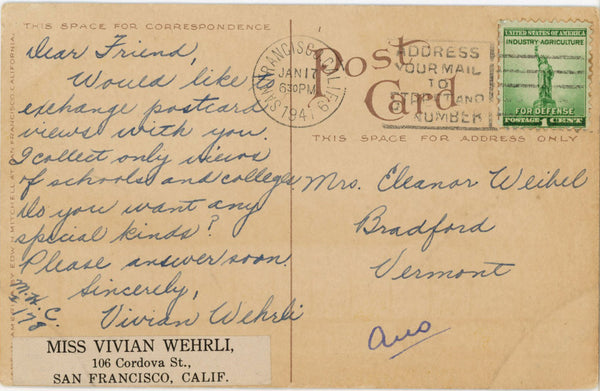 THIS SPACE FOR CORRESPONDENCE
Dear Friend,
Would like to
exchange postcard
views with you.
I collect only views
of schools and colleges
Do you want any
special kinds?
Please answer soon.
Sincerely,
Vivian Wehrli
MISS VIVIAN WEHRLI,
106 Cordova St.,
SAN FRANCISCO, CALIF.
SAN FRANCISCO, CALIF.
JAN 17
630PM
1941
Post
Card
ADDRESS
YOUR MAIL
TO
STREET AND
NUMBER
UNITED STATES OF AMERICA
INDUSTRY-AGRICULTURE
FOR DEFENSE
POSTAGE 1 CENT
THIS SPACE FOR ADDRESS ONLY
Mrs. Eleanor Weibel
Bradford
Vermont
Ans